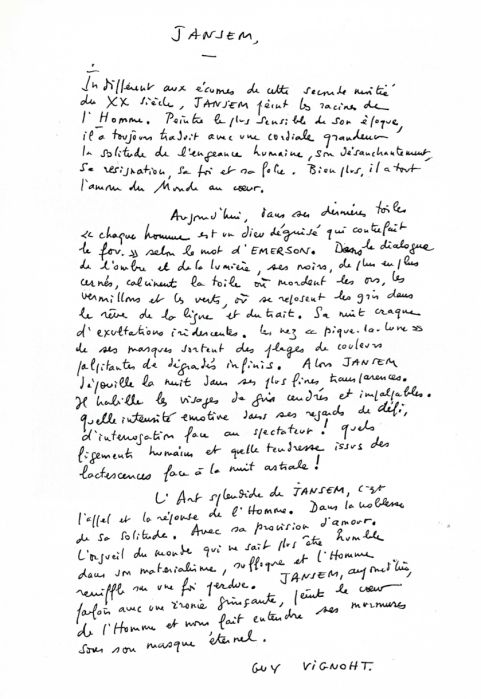 JANSEM,
Indifférent aux écumes de cette seconde moitié
du XX siècle, JANSEM peint les racines de
l'Homme. Peintre le plus sensible de son époque,
il a toujours traduit avec une cordiale grandeur
la solitude de l'engeance humaine, son désanchantement,
sa résignation, sa foi et sa folie. Bien plus, il a tout
l'amour du Monde au cœur.
Aujourd'hui, dans ses dernières toiles
« chaque homme est un dieu déguisé qui contrefait
le fou. » selon le mot d'EMERSON. Dans le dialogue
de l'ombre et de la lumière, ses noirs, de plus en plus
cernés, calcinent la toile où mordent les ors, les
vermillons et les verts, où se reposent les gris dans
le rêve de la ligne et du trait. Sa nuit craque
d'exultations iridescentes. Les nez « pique-la-lune »
de ses masques sortent des plages de couleurs
palpitantes de dégradés infinis. Alors JANSEM
dépouille la nuit dans ses plus fines transparences.
Il habille les visages de gris cendrés et impalpables.
Quelle intensité émotive dans ses regards de défi,
d'interrogation face au spectateur ! quels
figements humains et quelle tendresse issus des
lactescences face à la nuit astrale !
L'Art splendide de JANSEM, c'est
l'appel et la réponse de l'Homme. Dans la noblesse
de sa solitude. Avec sa provision d'amour.
L'orgueil du monde qui ne sait plus être humble
dans son matérialisme, suffoque et l'Homme
renifle sur une foi perdue. JANSEM, aujourd'hui,
parfois avec une ironie grinçante, peint le cœur
de l'Homme et nous fait entendre ses murmures
sous son masque éternel.
GUY VIGNOHT.